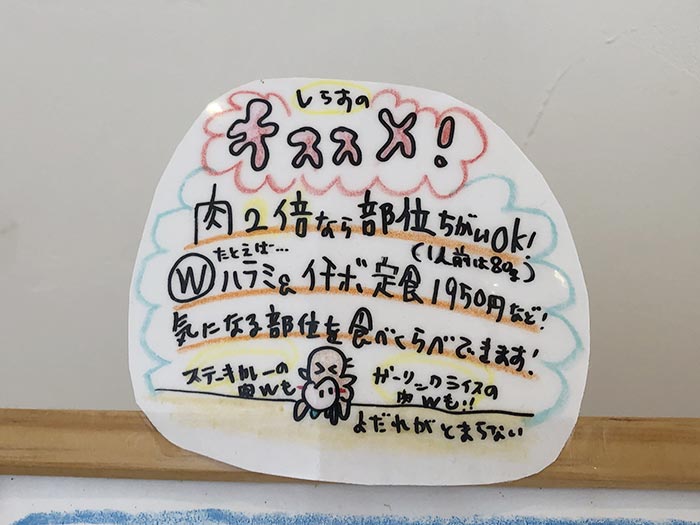 しらすの
オススメ!
肉2倍なら部位ちがいOK!
(1人前は80g)
たとえば…
Ⓦハラミ&イチボ定食1950円など!
気になる部位を食べくらべできます!
ステーキカレーの
肉Wも
ガーリックライスの
肉Wも!!
よだれがとまらない